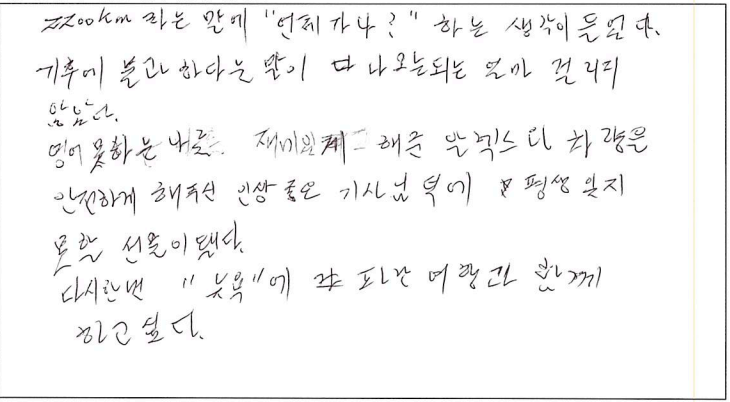 2200km 라는 말에 "언제가나?" 하는 생각이 들었다.
기후에 불과하다는 말이 다 나오는되는 얼마 걸리지
않았다.
영어 못하는 나를 재미있게 해준 알렉스와 차량을
안전하게 해주신 인상좋은 기사님 덕에 평생 잊지
못할 선물이 됐다.
다시한번 "뉴욕"에 파란여행과 함께
하고싶다.